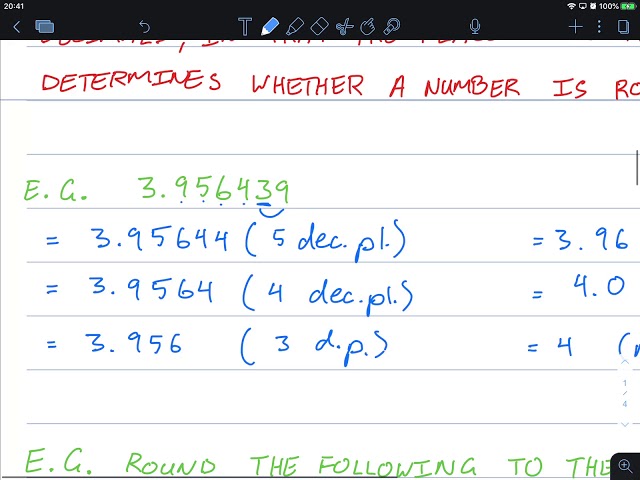 20:41
100%
DETERMINES WHETHER A NUMBER IS RO
E.G. 3.956439
= 3.95644 (5 dec.pl.) = 3.96
= 3.9564 (4 dec.pl.) = 4.0
= 3.956 (3 d.p.) = 4 (
1
/
4
E.G. ROUND THE FOLLOWING TO THE